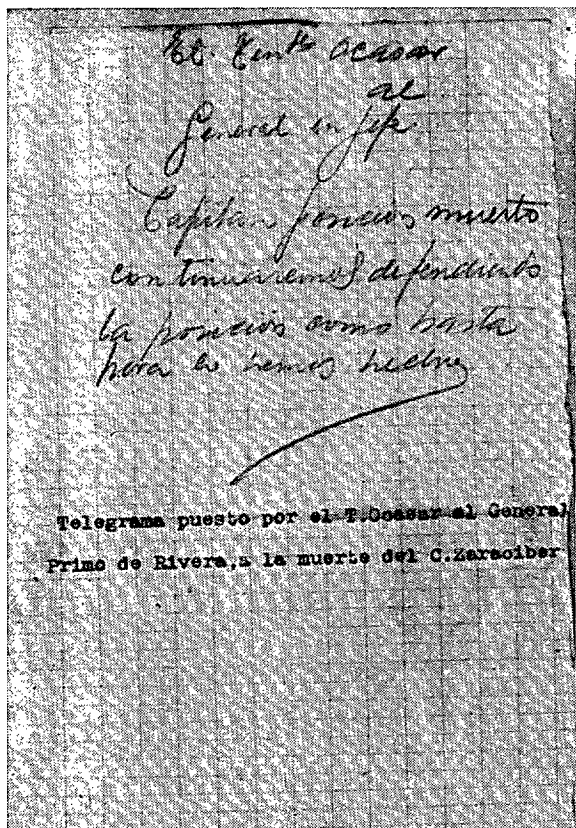 El Tente Ocasar
al
General en Jefe
Capitan posicion muerto
continuaremos defendiendo
la posicion como hasta
hora lo hemos hecho
Telegrama puesto por el T.Ocasar al General
Primo de Rivera,a la muerte del C.Zaraciber